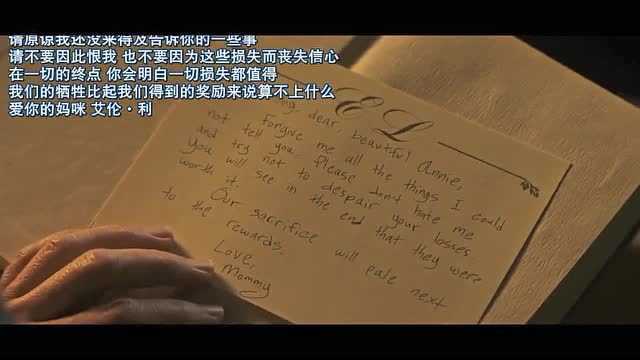 请原谅我还没来得及告诉你的一些事
请不要因此恨我 也不要因为这些损失而丧失信心
在一切的终点 你会明白一切损失都值得
我们的牺牲比起我们得到的奖励来说算不上什么
爱你的妈咪 艾伦·利
EL
dear, beautiful Annie,
Forgive me all the things I could
not tell you. Please dont hate me
and try not to despair your losses
You will see in the end that they were
worth it.
Our sacrifice will pale next
to the rewards.
Love,
Mommy